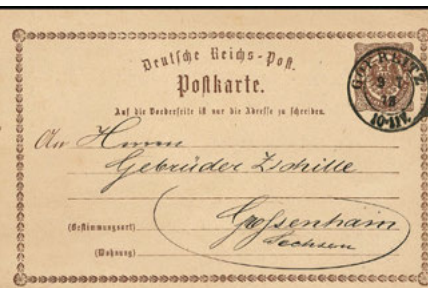 Deutsche Reichs-Post.
Postkarte.
Auf die Vorderseite ist nur die Adresse zu schreiben.
GOERLITZ
18
10-11V.
An Herren
Gebrüder Zschille
(Bestimmungsort) Grossenhain
Sachsen
(Wohnung)